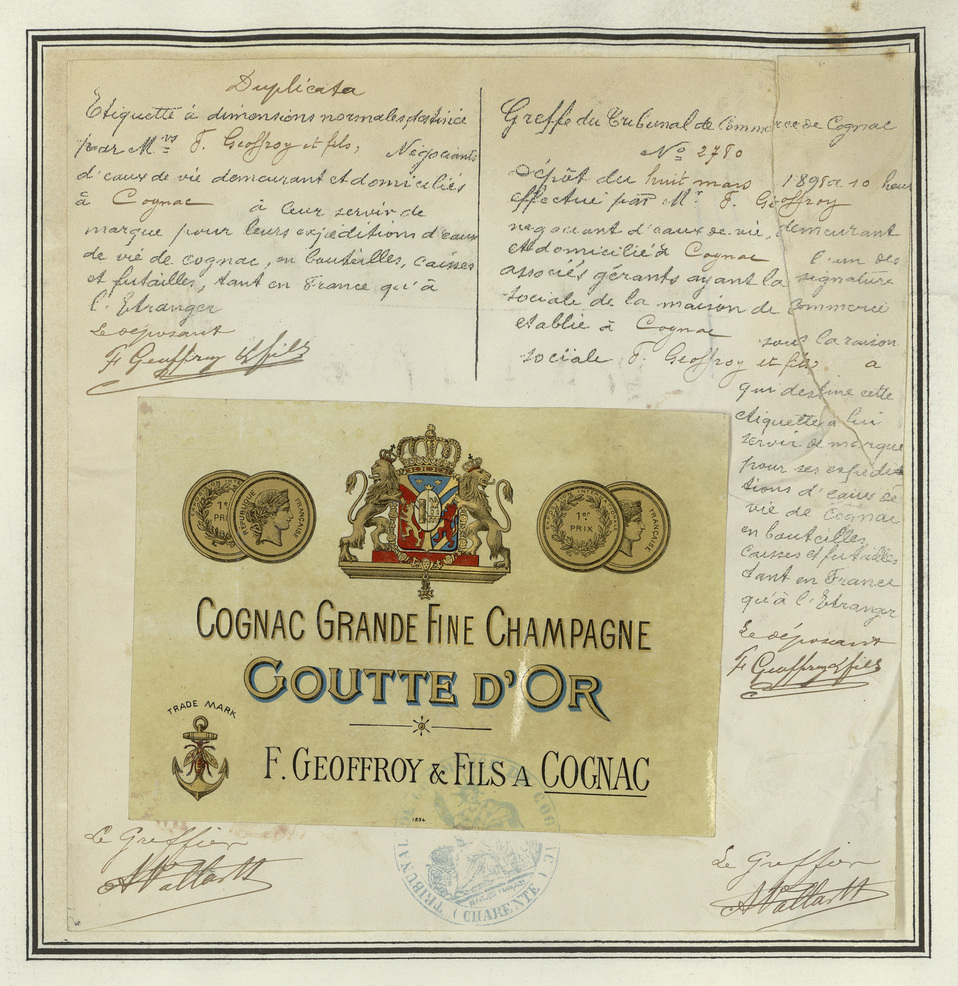 Duplicata
Etiquette à dimensions normales, destinée
par Mrs F. Geoffroy et fils, Négociants
d'eaux de vie demeurant et domiciliés
à Cognac à leur servir de
marque pour leurs expéditions d'eaux
de vie de cognac, en bouteilles, caisses
et futailles, tant en France qu'à
l'Etranger
Le déposant
F Geoffroy & fils
Greffe du Tribunal de Commerce de Cognac
No 2780
Dépôt du huit mars 1895 à 10 heures
effectué par Mr F. Geoffroy
negociant d'eaux-de-vie, demeurant
et domicilié à Cognac l'un des
associés gérants ayant la signature
sociale de la maison de Commerce
etablie à Cognac
sous la raison
sociale F. Geoffroy et fils a
qui destine cette
etiquette à lui
servir de marque
pour ses expédi
tions d'eaux de
vie de Cognac
en bouteilles,
caisses et futailles
tant en France
qu'à l'Etranger
Le déposant
F Geoffroy & fils
1er
PRIX
REPUBLIQUE FRANÇAISE
1er
PRIX
FRANÇAISE
COGNAC GRANDE FINE CHAMPAGNE
GOUTTE D'OR
TRADE MARK
F. GEOFFROY & FILS A COGNAC
1894
TRIBUNAL DE COGNAC
(CHARENTE)
Le Greffier
Le Greffier